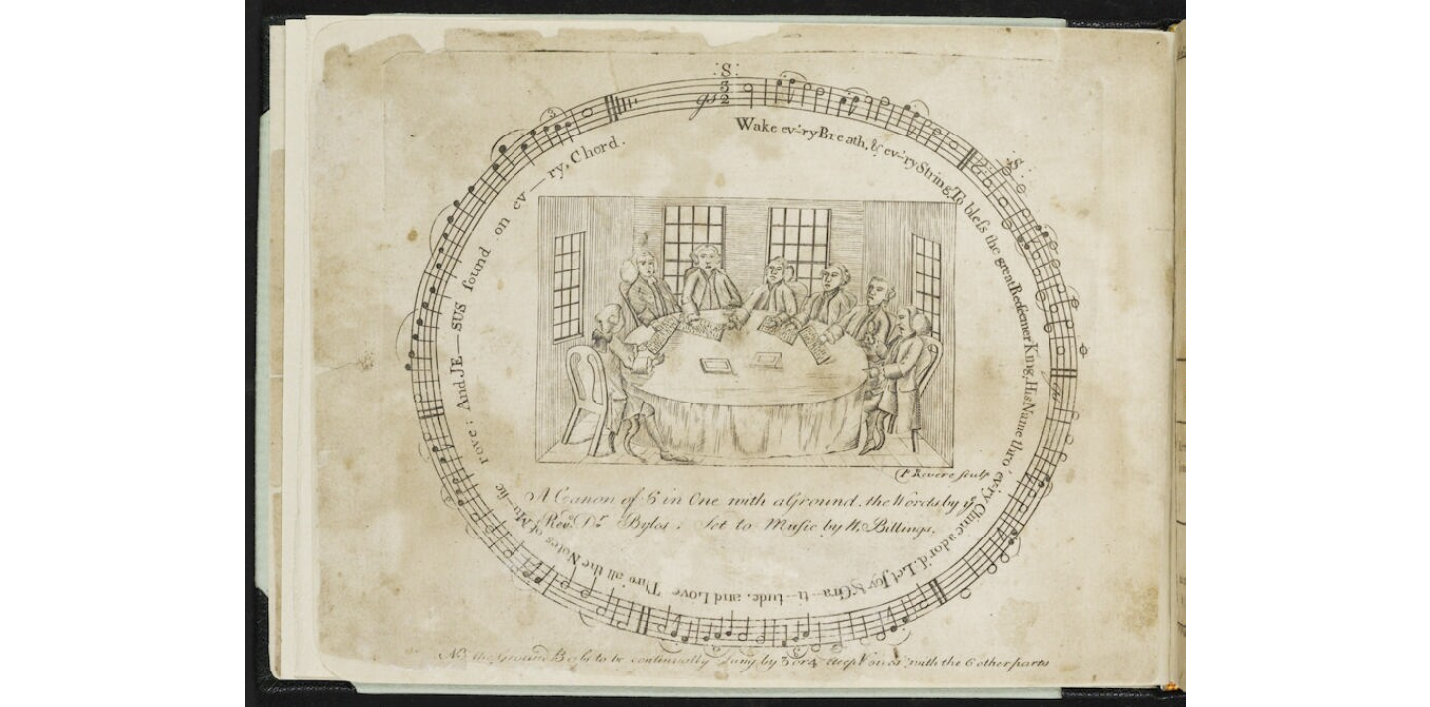 Wake ev'-ry Breath, & ev'-ry String, To bleſs the great Redeemer King, His Name thro' ev'ry Clime ador'd. Let Joy & Gra-ti-tude, and Love Thro' all the Notes of Mu-ſic rove; And JE-SUS ſound on ev-ry, Chord.
P Revere Sculp
A Canon of 6 in One with a Ground, the Words by yͤ
Revᵈ. Dʳ. Byles, Set to Muſic by W. Billings.
NB. the Ground Baſs to be continually Sung by 3 or 4 deep Voices with the 6 other parts